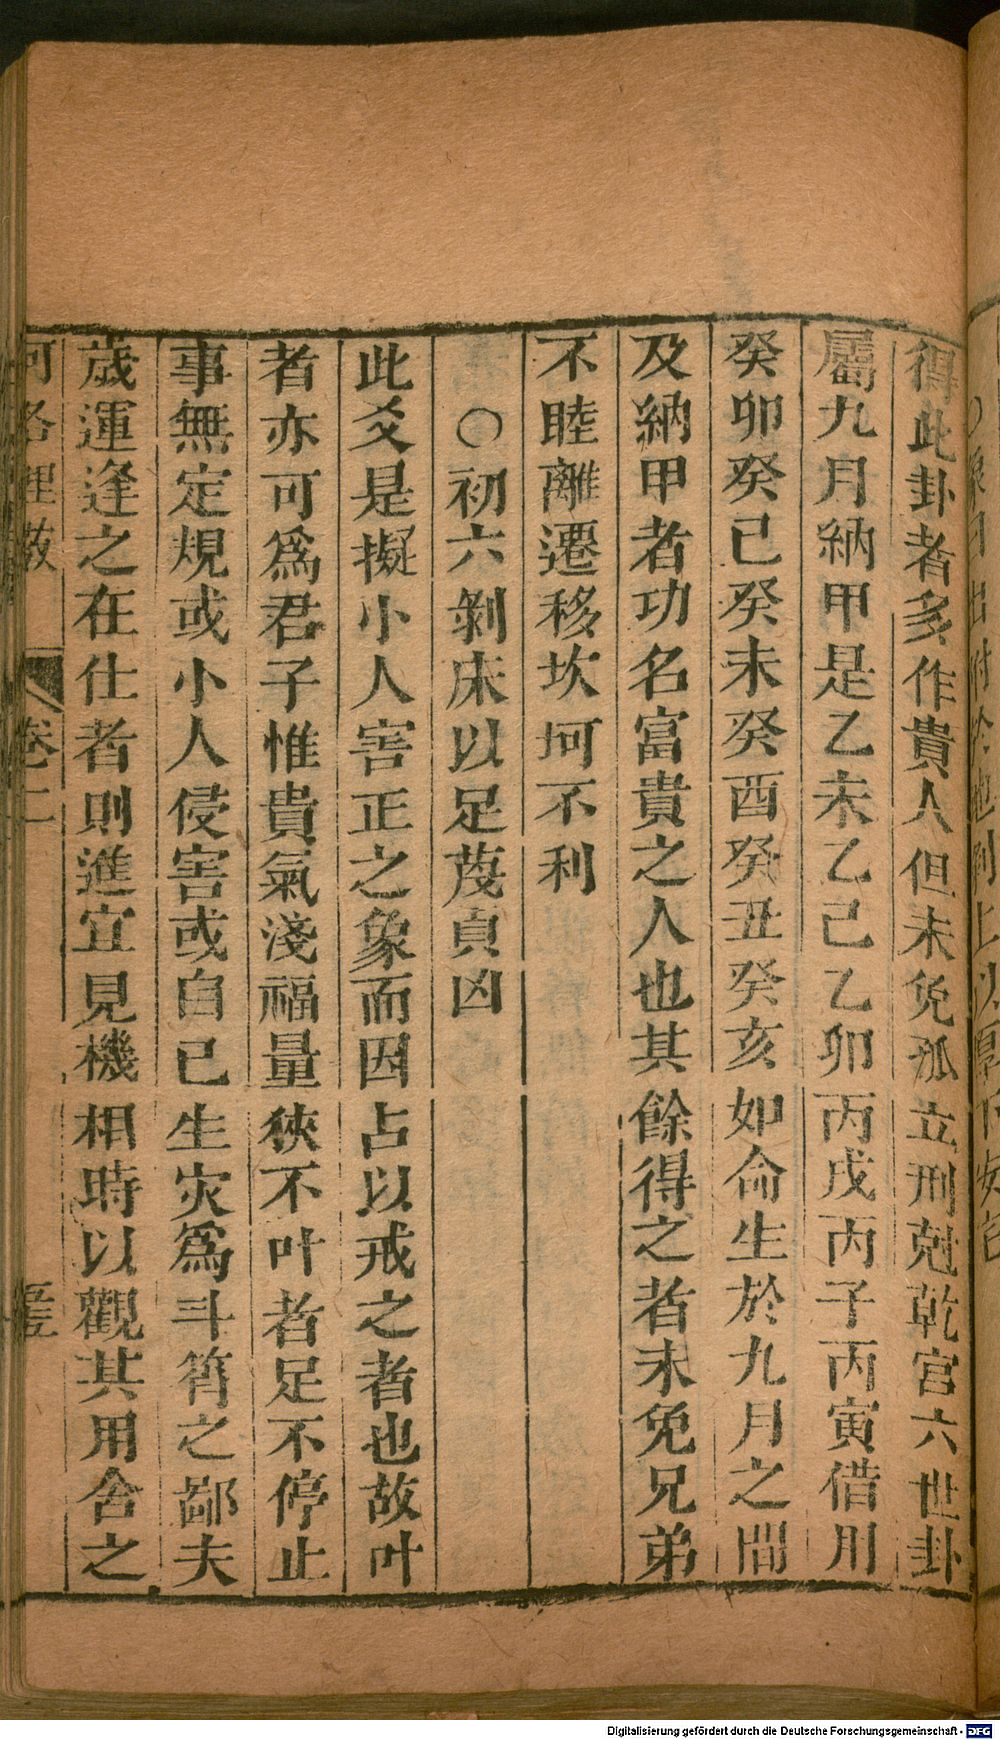 得此卦者多作貴人但未免孤立刑尅乾宮六世卦
屬九月納甲是乙未乙己乙卯丙戌丙子丙寅借用
癸卯癸巳癸未癸酉癸丑癸亥如命生於九月之間
及納甲者功名富貴之人也其餘得之者未免兄弟
不睦離遷移坎坷不利
○初六剝床以足蔑貞凶
此爻是擬小人害正之象而因占以戒之者也故叶
者亦可爲君子惟貴氣淺福量狹不叶者足不停止
事無定規或小人侵害或自已生灾爲斗筲之鄙夫
歲運逢之在仕者則進宜見機相時以觀其用舍之
河洛理数 卷二
Digitalisierung gefördert durch die Deutsche Forschungsgemeinschaft - DFG